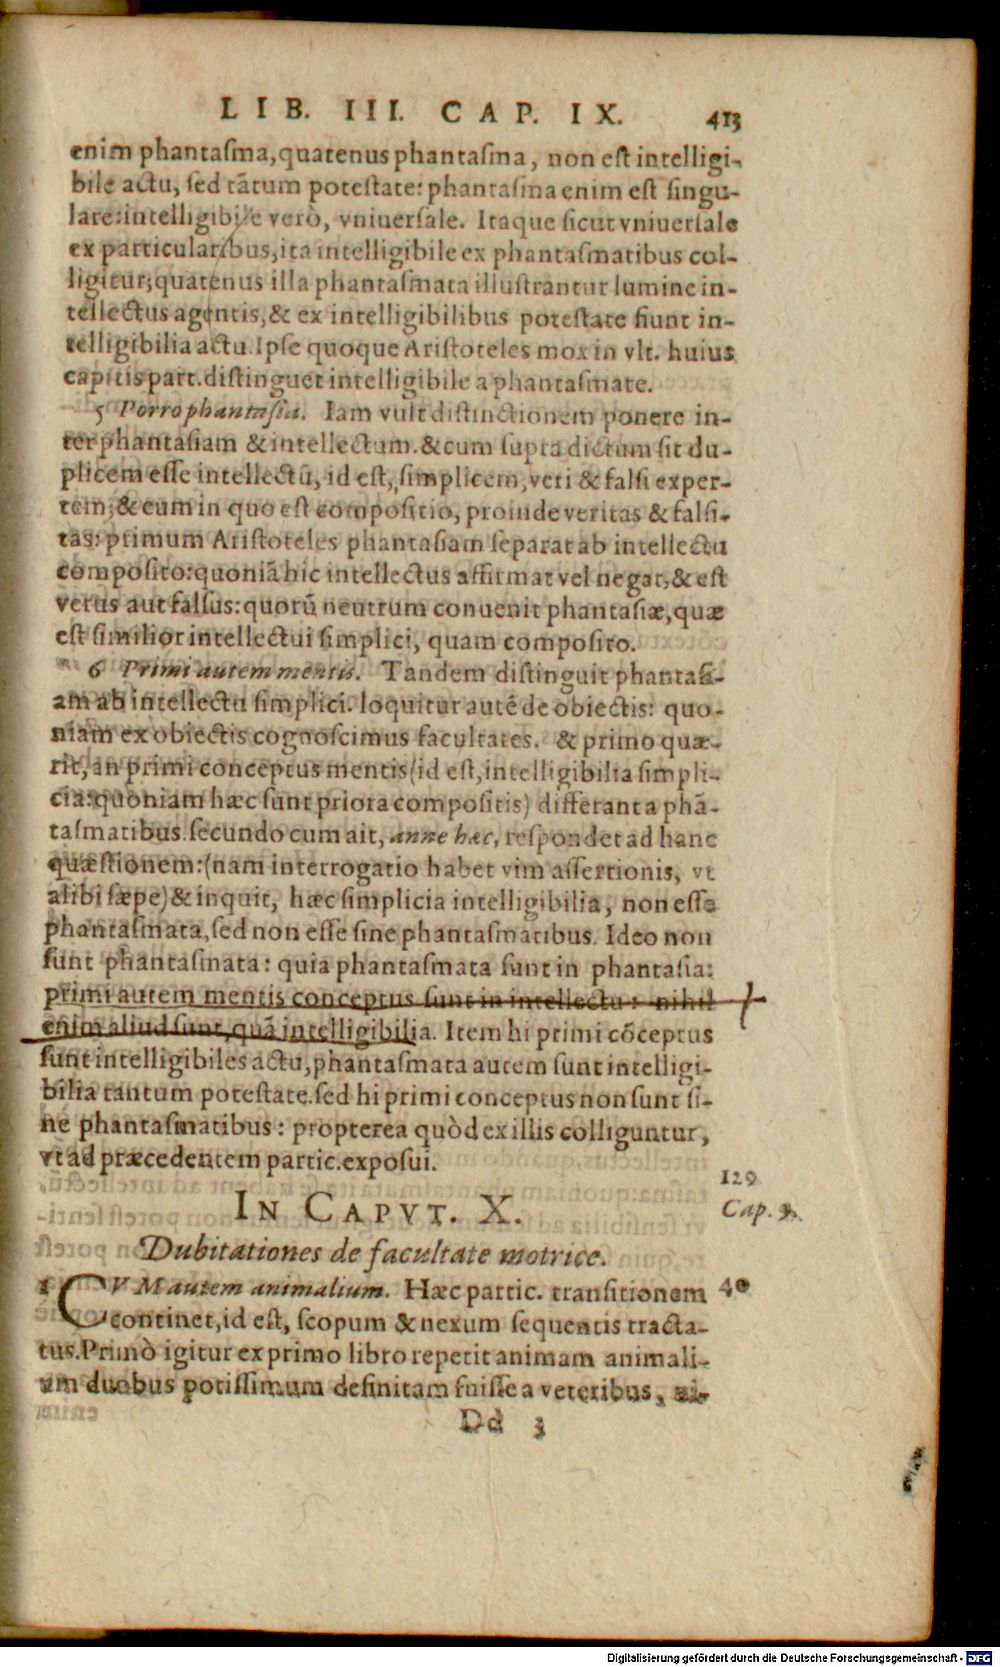 LIB. III. CAP. IX. 413
enim phantaſma, quatenus phantaſma, non eſt intelligi-
bile actu, ſed tãtum poteſtate: phantaſma enim eſt ſingu-
lare: intelligibile verò, vniuerſale. Itaque ſicut vniuerſale
ex particularibus, ita intelligibile ex phantaſmatibus col-
ligitur; quatenus illa phantaſmata illuſtrantur lumine in-
tellectus agentis, & ex intelligibilibus poteſtate fiunt in-
telligibilia actu. Ipſe quoque Ariſtoteles mox in vlt. huius
capitis part. diſtinguet intelligibile a phantaſmate.
5 Porro phantaſia. Iam vult diſtinctionem ponere in-
ter phantaſiam & intellectum. & cum ſupra dictum ſit du-
plicem eſſe intellectũ, id eſt, ſimplicem, veri & falſi exper-
tem; & eum in quo eſt compoſitio, proinde veritas & falſi-
tas: primum Ariſtoteles phantaſiam ſeparat ab intellectu
compoſito: quoniã hic intellectus affirmat vel negat, & eſt
verus aut falſus: quorũ neutrum conuenit phantaſiæ, quæ
eſt ſimilior intellectui ſimplici, quam compoſito.
6 Primi autem mentis. Tandem diſtinguit phantaſi-
am ab intellectu ſimplici. loquitur autẽ de obiectis: quo-
niam ex obiectis cognoſcimus facultates. & primo quæ-
rit, an primi conceptus mentis (id eſt, intelligibilia ſimpli-
cia: quoniam hæc ſunt priora compoſitis) differant a phã-
taſmatibus. ſecundo cum ait, anne hæc, reſpondet ad hanc
quæſtionem: (nam interrogatio habet vim aſſertionis, vt
alibi ſæpe) & inquit, hæc ſimplicia intelligibilia, non eſſe
phantaſmata, ſed non eſſe ſine phantaſmatibus. Ideo non
ſunt phantaſmata: quia phantaſmata ſunt in phantaſia:
primi autem mentis conceptus ſunt in intellectu: nihil
enim aliud ſunt, quã intelligibilia. Item hi primi cõceptus
ſunt intelligibiles actu, phantaſmata autem ſunt intelligi-
bilia tantum poteſtate. ſed hi primi conceptus non ſunt ſi-
ne phantaſmatibus: propterea quòd ex illis colliguntur,
vt ad præcedentem partic. expoſui.
129
IN CAPVT. X.
Cap. 9.
Dubitationes de facultate motrice.
1 CVM autem animalium. Hæc partic. tranſitionem 40
continet, id eſt, ſcopum & nexum ſequentis tracta-
tus. Primò igitur ex primo libro repetit animam animali-
um duobus potiſſimum definitam fuiſſe a veteribus, ni-
Dd 3
Digitalisierung gefördert durch die Deutsche Forschungsgemeinschaft - DFG